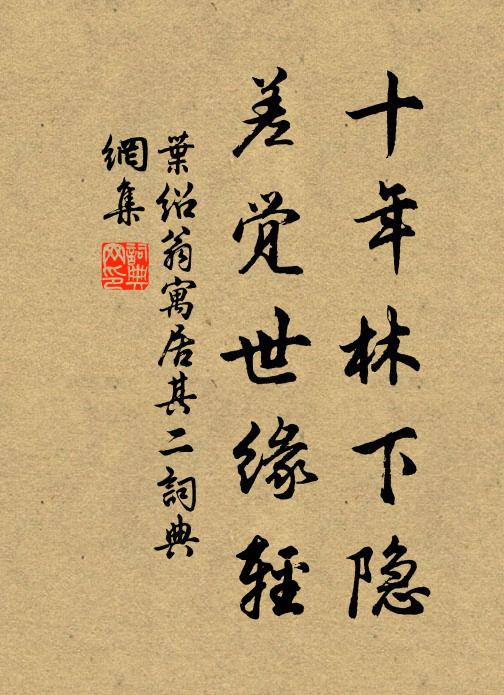 十年林下隐
差觉世缘輕
葉紹翁寓居其二詞典
網集
詞典网印